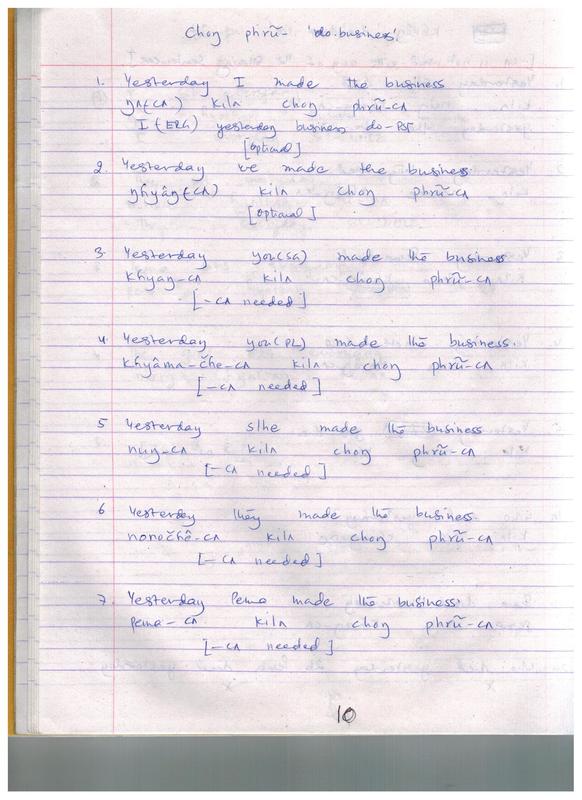 Chong phrũ- 'do.business'.
1. Yesterday I made the business
ŋʌ(cʌ) kilʌ chong phrũ-cʌ
I (ERG) yesterday business do-PST
[optional]
2. Yesterday we made the business
ŋhyâŋ(-cʌ) kilʌ chong phrũ-cʌ
[optional]
3. Yesterday you(SG) made the business
khyaŋ-cʌ kilʌ chong phrũ-cʌ
[-cʌ needed]
4. Yesterday you(PL) made the business.
khyâma-čhe-cʌ kilʌ chong phrũ-cʌ
[-cʌ needed]
5 Yesterday s/he made the business
nuŋ-cʌ kilʌ chong phrũ-cʌ
[-cʌ needed]
6 Yesterday they made the business
nonočhê-cʌ kilʌ chong phrũ-cʌ
[-cʌ needed]
7. Yesterday Pema made the business.
Pema-cʌ kilʌ chong phrũ-cʌ
[-cʌ needed]
10